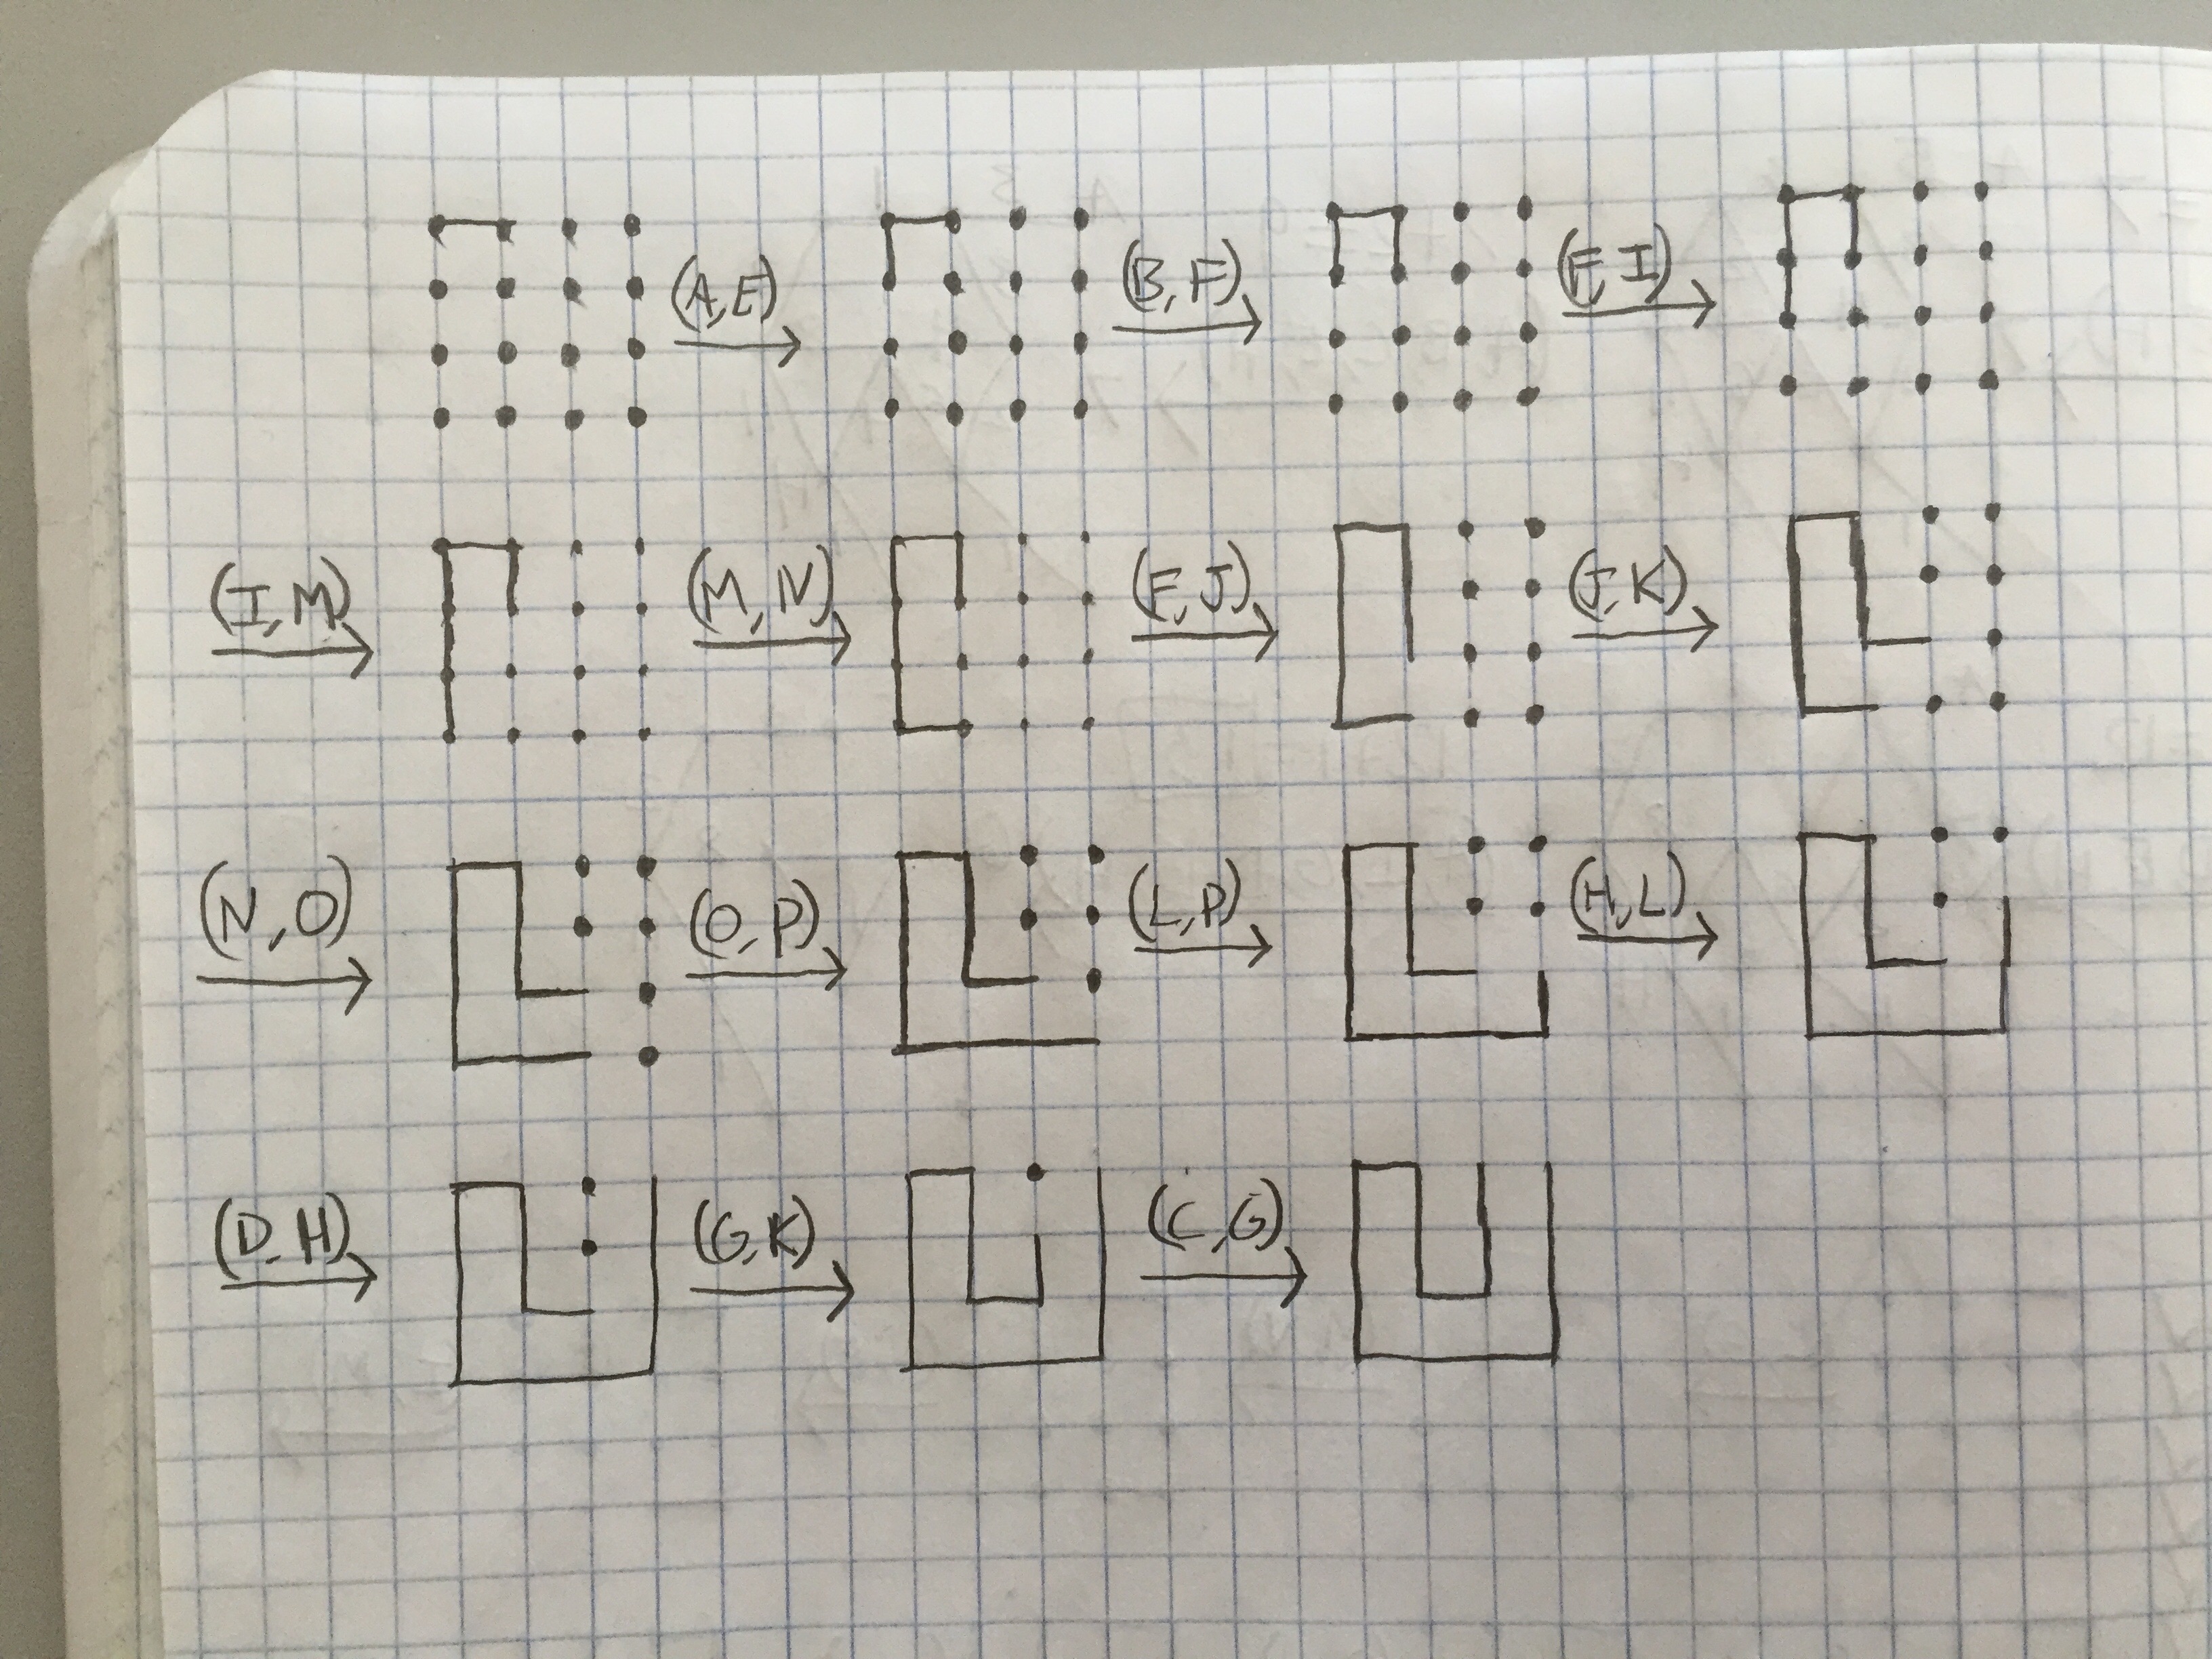 (A,E) (B,F) (F,I)
(I,M) (M,N) (F,J) (J,K)
(N,O) (O,P) (L,P) (H,L)
(D,H) (G,K) (C,G)